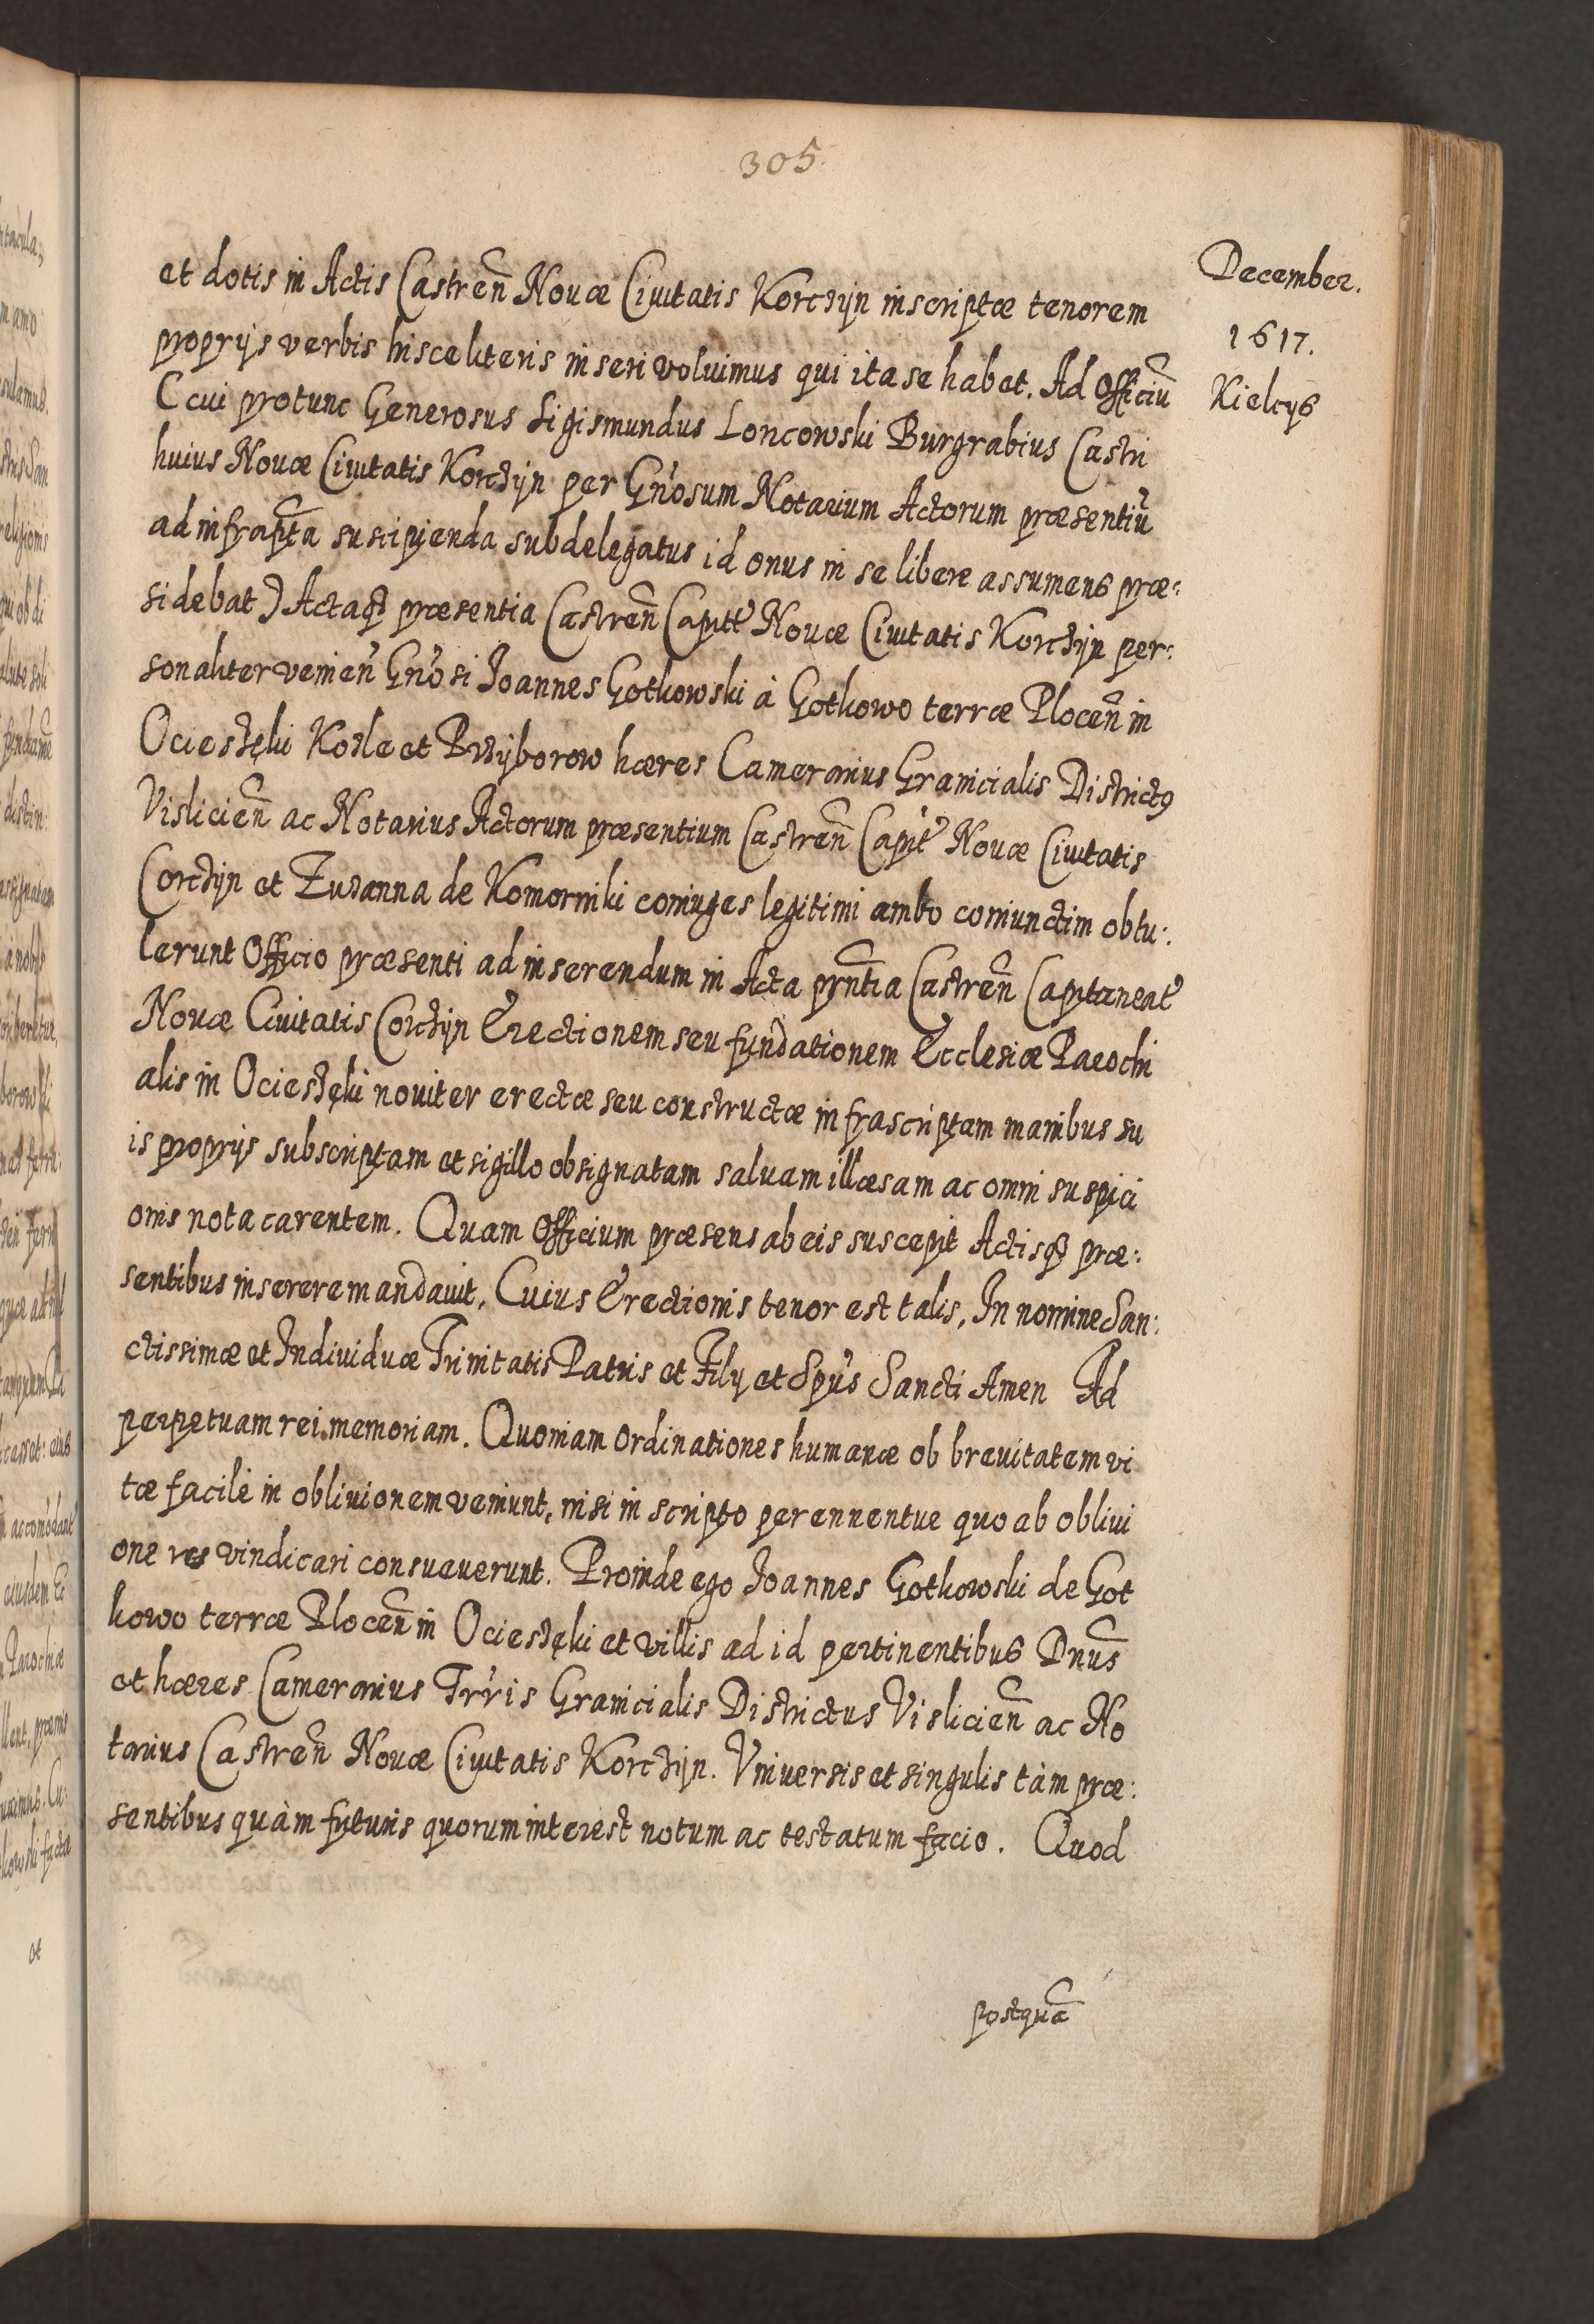 305
December.
1617.
Kielcys
et dotis in Actis Castren̄ Nouæ Ciuitatis Korczÿn inscriptæ tenorem
proprÿs verbis hisce literis inseri voluimus qui ita se habet. Ad Officiū
(cui protunc Generosus Sigismundus Loncowski Burgrabius Castri
huius Nouæ Ciuitatis Korczÿn per Gn̓osum Notarium Actorum præsentiū
ad infrapt̄a suscipienda subdelegatus id onus in se libere assumens præ:
sidebat) Actaqꝫ præsentia Castren̄ Capitt̓ Nouæ Ciuitatis Korczÿn per:
sonaliter venien̓ Gn̓osi Joannes Gotkowski à Gotkowo terræ Plocen̄ in
Ocieszęki Kozle et Przÿborow hæres Camerarius Granicialis Districtꝯ
Vislicien̄ ac Notarius Actorum præsentium Castren̄ Capit̓ Nouæ Ciuitatis
Corczÿn et Zuzanna de Komorniki coniuges legitimi ambo coniunctim obtu:
lerunt Officio præsenti ad inserendum in Acta prn̄tia Castren̄ Capitaneat̓
Nouæ Ciuitatis Corczÿn Erectionem seu fundationem Ecclesiæ Parochi
alis in Ocieszęki nouiter erectæ seu constructæ infrascriptam manibus su
is proprÿs subscriptam et sigillo obsignatam saluam illæsam ac omni suspici
onis nota carentem. Quam Officium præsens ab eis suscepit Actisqꝫ præ:
sentibus inserere mandauit, Cuius Erectionis tenor est talis, In nomine San:
ctissimæ et Indiuiduæ Trinitatis Patris et Filÿ et Spu̓s Sancti Amen Ad
perpetuam rei memoriam. Quoniam Ordinationes humanæ ob breuitatem vi
tæ facilè in obliuionem veniunt, nisi in scripto perennentur quo ab obliui
one res vindicari consueuerunt. Proinde ego Joannes Gotkowski de Got
kowo terræ Plocen̄ in Ocieszęki et villis ad id pertinentibus Dnūs
et hæres Camerarius Tr̓ris Granicialis Districtus Vislicien̄ ac No
tarius Castren̄ Nouæ Ciuitatis Korczÿn. Vniuersis et singulis tàm præ:
sentibus quàm futuris quorum interest notum ac testatum facio. Quod
postquā